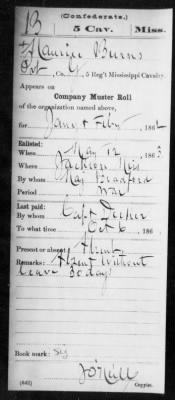 B
(Confederate.)
5 Cav. Miss.
Maurice Burns
Pvt, Co. G, 5 Reg't Mississippi Cavalry.
Appears on
Company Muster Roll
of the organization named above,
for Jany & Feby, 1864
Enlisted:
When May 12, 1863
Where Jackson Miss
By whom Maj Bradford
Period War
Last paid:
By whom Capt
To what time Oct 6, 186
Present or absent Absent
Remarks: Absent Without
leave 30 days
Book mark:
(642) Copyist.